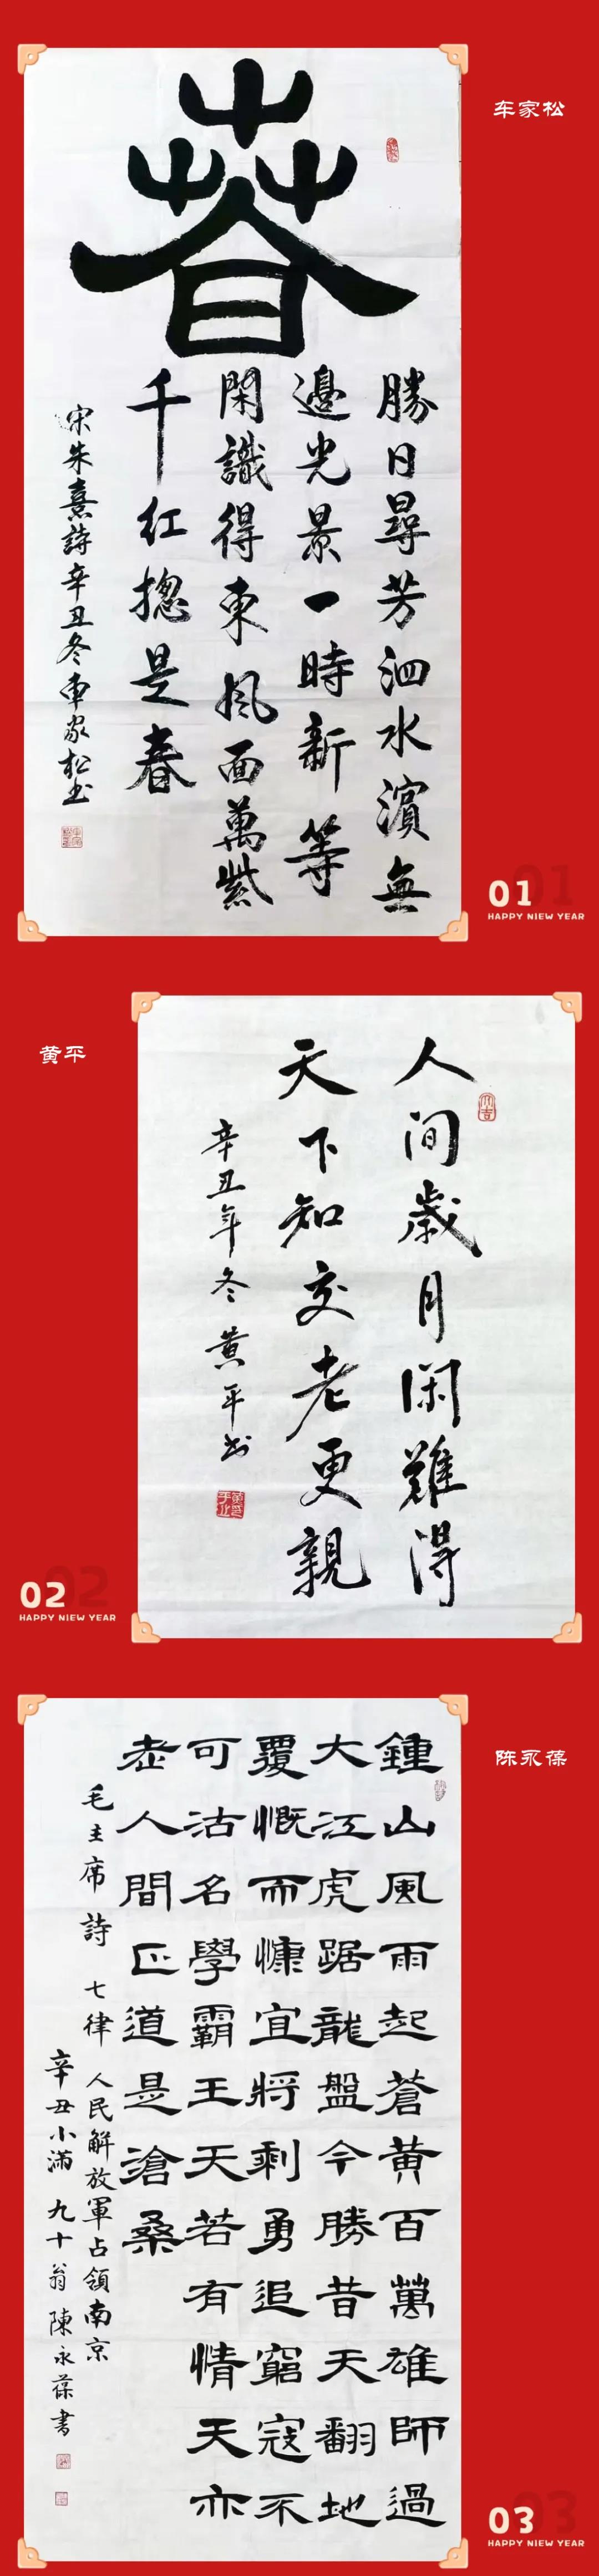 车家松
萅
勝日尋芳泗水濱無
邊光景一時新等
閑識得東風面萬紫
千红揔是春
宋朱熹詩辛丑冬車家松书
01
HAPPY NIEW YEAR
黄平
人间歲月闲難得
天下知交老更親
辛丑年冬黄平书
02
HAPPY NIEW YEAR
陈永葆
鍾山風雨起蒼黄百萬雄師過
大江虎踞龍盤今勝昔天翻地
覆慨而慷宜將剩勇追窮寇不
可沽名學霸王天若有情天亦
老人間正道是滄桑
毛主席詩 七律 人民解放軍占領南京
辛丑小滿 九十翁 陳永葆書
03
HAPPY NIEW YEAR